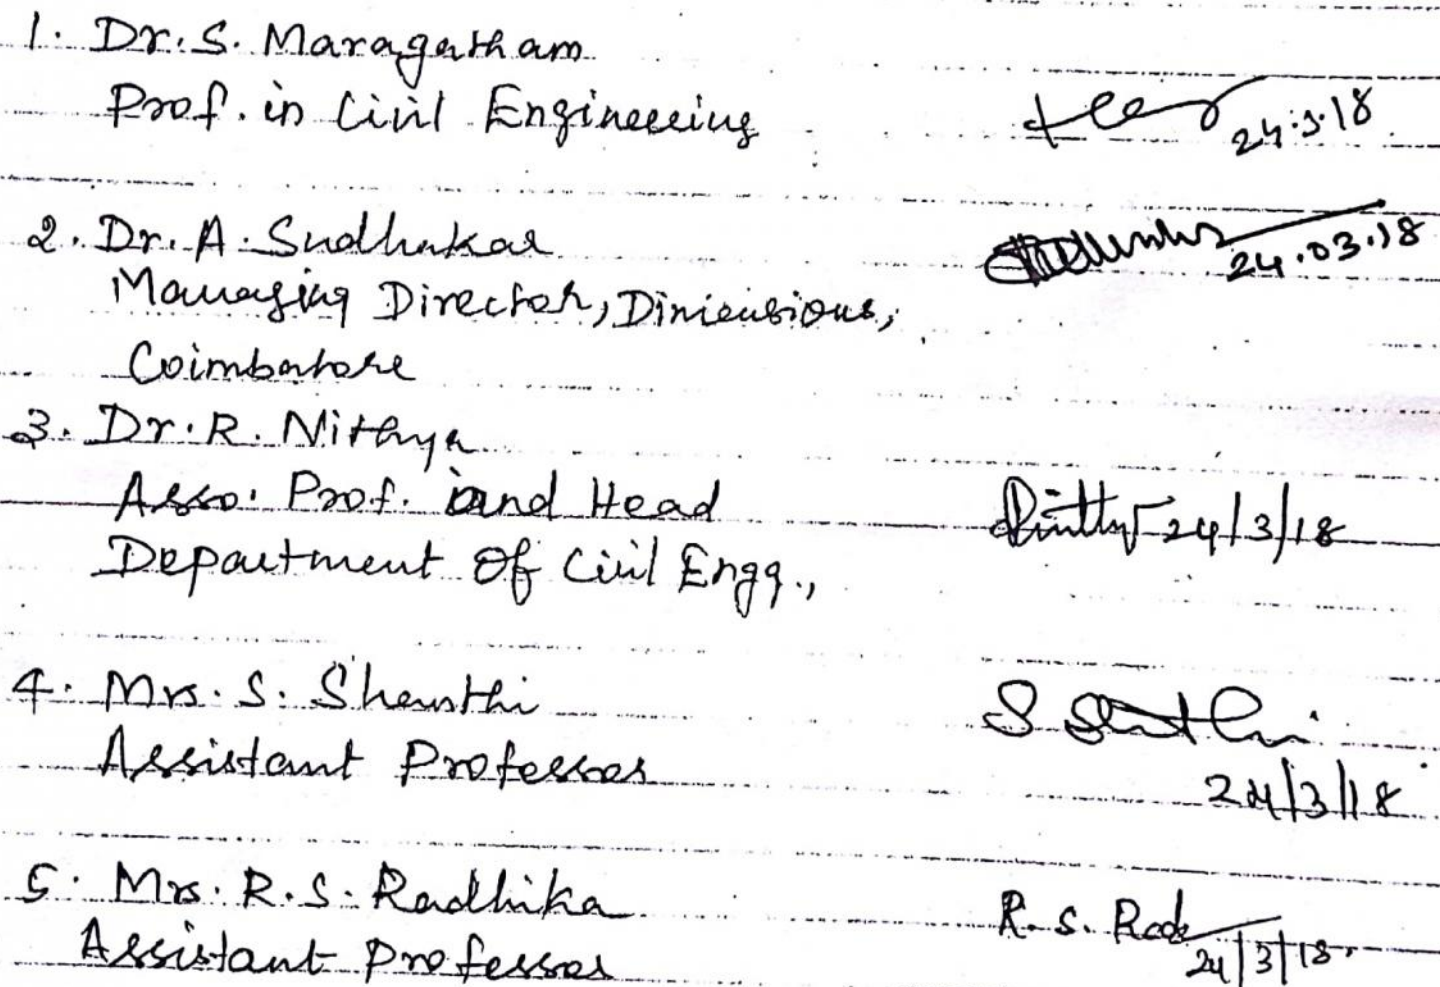 1. Dr. S. Maragatham
Prof. in Civil Engineering
24.3.18
2. Dr. A. Sudhakar
24.03.18
Managing Director, Dimensions,
Coimbatore
3. Dr. R. Nithya
Asso. Prof. and Head
24/3/18
Department of Civil Engg.,
4. Mrs. S. Shanthi
S
Assistant Professor
24/3/18
5. Mrs. R. S. Radhika
R. S. Rad
Assistant Professor
24/3/18.